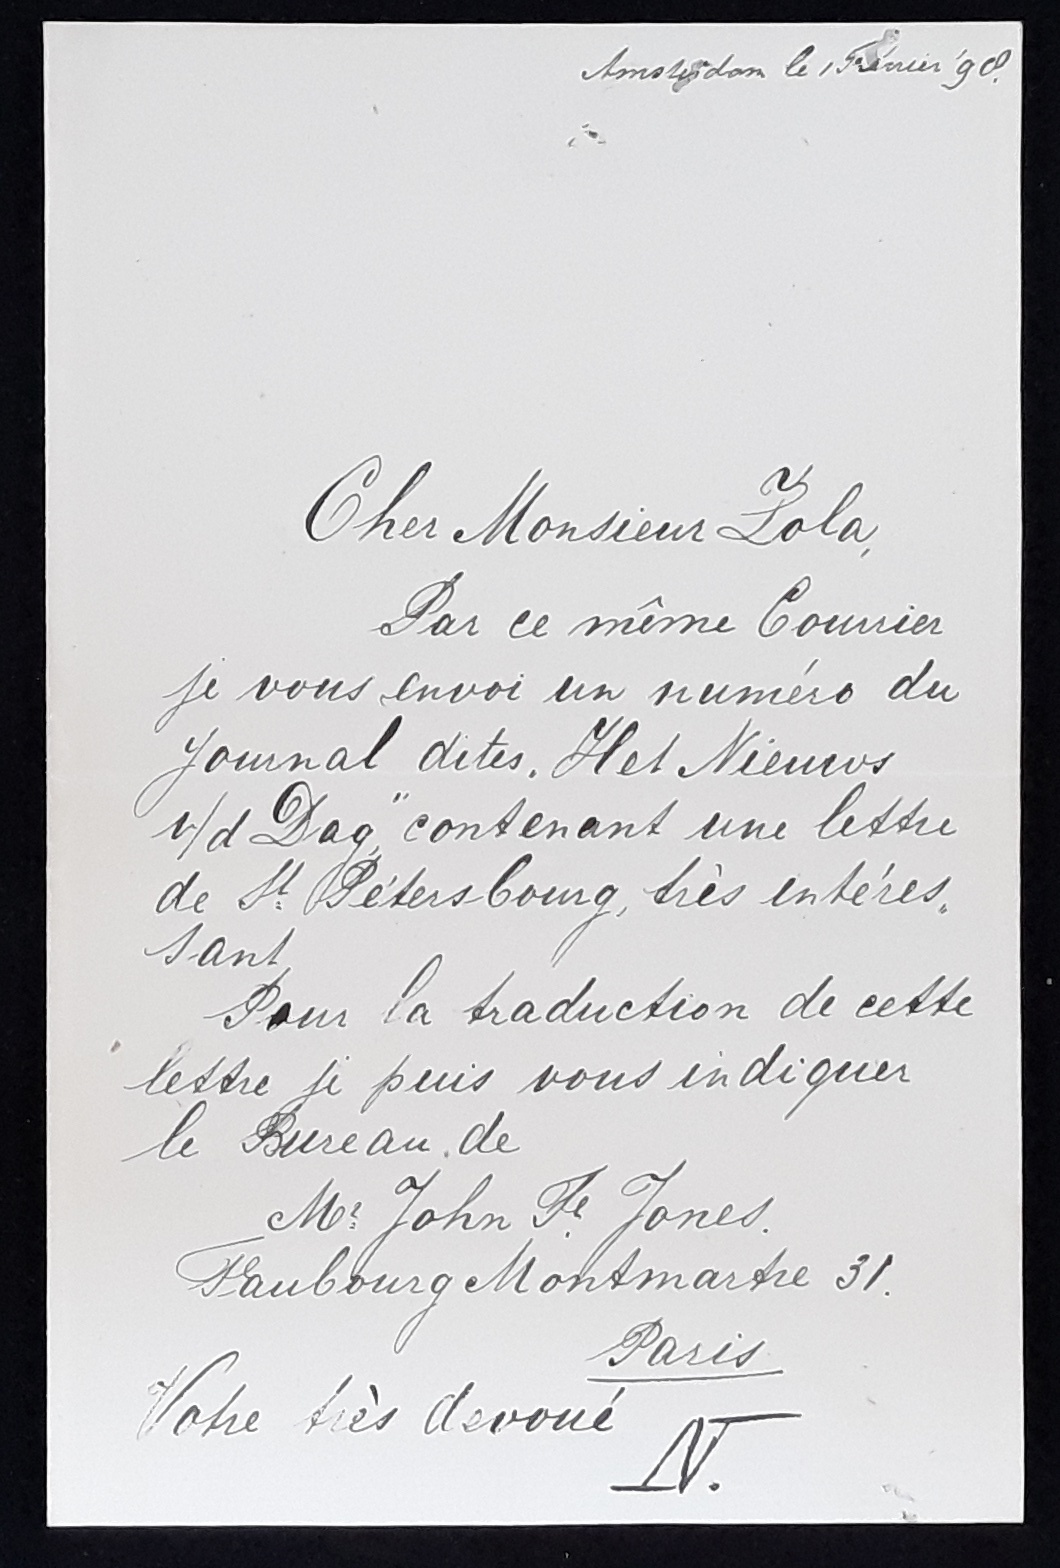 Amsterdam le 1 Février '98.
Cher Monsieur Zola,
Par ce même Courrier
je vous envoi un numéro du
journal dites „Het Nieuws
v/d Dag" contenant une lettre
de St. Pétersbourg, très intéres„
sant
Pour la traduction de cette
lettre je puis vous indiquer
le Bureau de
Mr. John Fe. Jones.
Faubourg Montmartre 31.
Paris
Votre très devoué
N.